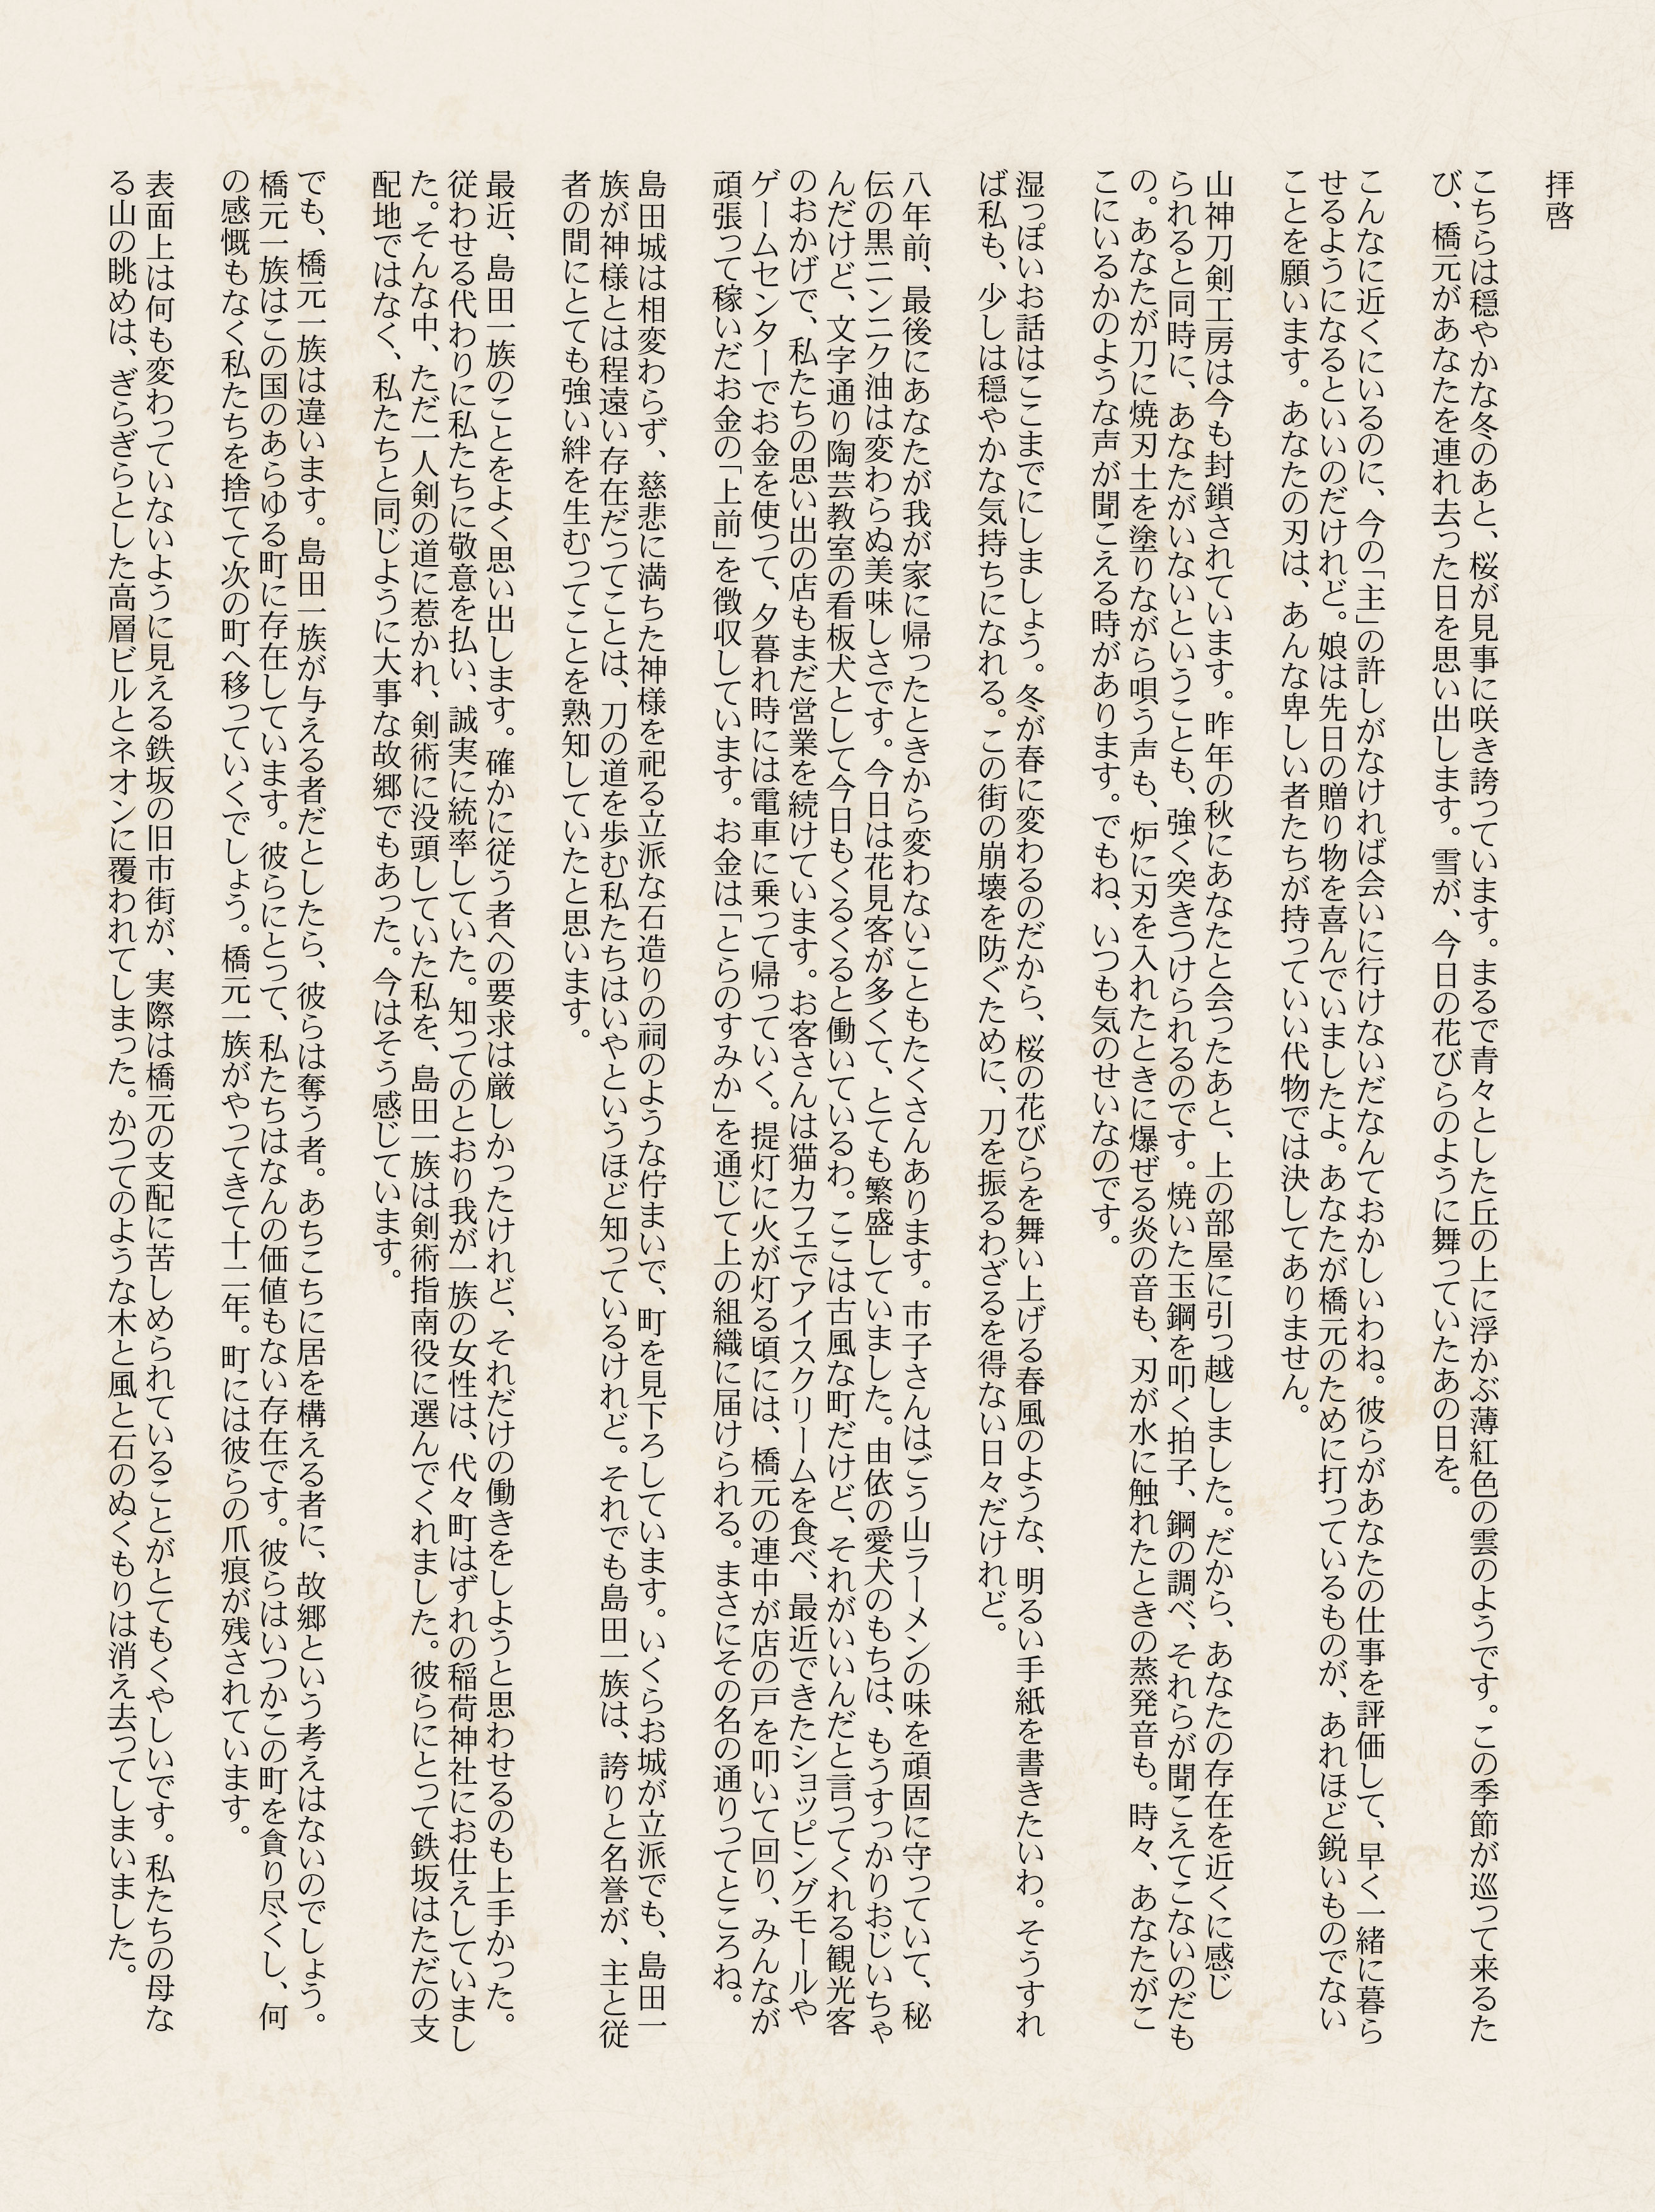 拝啓
こちらは穏やかな冬のあと、桜が見事に咲き誇っています。まるで青々とした丘の上に浮かぶ薄紅色の雲のようです。この季節が巡って来るた
び、橋元があなたを連れ去った日を思い出します。雪が、今日の花びらのように舞っていたあの日を。
こんなに近くにいるのに、今の「主」の許しがなければ会いに行けないだなんておかしいわね。彼らがあなたの仕事を評価して、早く一緒に暮ら
せるようになるといいのだけれど。娘は先日の贈り物を喜んでいましたよ。あなたが橋元のために打っているものが、あれほど鋭いものでない
ことを願います。あなたの刃は、あんな卑しい者たちが持っていい代物では決してありません。
山神刀剣工房は今も封鎖されています。昨年の秋にあなたと会ったあと、上の部屋に引っ越しました。だから、あなたの存在を近くに感じ
られると同時に、あなたがいないということも、強く突きつけられるのです。焼いた玉鋼を叩く拍子、鋼の調べ、それらが聞こえてこないのだも
の。あなたが刀に焼刃土を塗りながら唄う声も、炉に刃を入れたときに爆ぜる炎の音も、刃が水に触れたときの蒸発音も。時々、あなたがこ
こにいるかのような声が聞こえる時があります。でもね、いつも気のせいなのです。
湿っぽいお話はここまでにしましょう。冬が春に変わるのだから、桜の花びらを舞い上げる春風のような、明るい手紙を書きたいわ。そうすれ
ば私も、少しは穏やかな気持ちになれる。この街の崩壊を防ぐために、刀を振るわざるを得ない日々だけれど。
八年前、最後にあなたが我が家に帰ったときから変わらないこともたくさんあります。市子さんはごう山ラーメンの味を頑固に守っていて、秘
伝の黒ニンニク油は変わらぬ美味しさです。今日は花見客が多くて、とても繁盛していました。由依の愛犬のもちは、もうすっかりおじいちゃ
んだけど、文字通り陶芸教室の看板犬として今日もくるくると働いているわ。ここは古風な町だけど、それがいいんだと言ってくれる観光客
のおかげで、私たちの思い出の店もまだ営業を続けています。お客さんは猫カフェでアイスクリームを食べ、最近できたショッピングモールや
ゲームセンターでお金を使って、夕暮れ時には電車に乗って帰っていく。提灯に火が灯る頃には、橋元の連中が店の戸を叩いて回り、みんなが
頑張って稼いだお金の「上前」を徴収しています。お金は「とらのすみか」を通じて上の組織に届けられる。まさにその名の通りってところね。
島田城は相変わらず、慈悲に満ちた神様を祀る立派な石造りの祠のような佇まいで、町を見下ろしています。いくらお城が立派でも、島田一
族が神様とは程遠い存在だってことは、刀の道を歩む私たちはいやというほど知っているけれど。それでも島田一族は、誇りと名誉が、主と従
者の間にとても強い絆を生むってことを熟知していたと思います。
最近、島田一族のことをよく思い出します。確かに従う者への要求は厳しかったけれど、それだけの働きをしようと思わせるのも上手かった。
従わせる代わりに私たちに敬意を払い、誠実に統率していた。知ってのとおり我が一族の女性は、代々町はずれの稲荷神社にお仕えしていまし
た。そんな中、ただ一人剣の道に惹かれ、剣術に没頭していた私を、島田一族は剣術指南役に選んでくれました。彼らにとって鉄坂はただの支
配地ではなく、私たちと同じように大事な故郷でもあった。今はそう感じています。
でも、橋元一族は違います。島田一族が与える者だとしたら、彼らは奪う者。あちこちに居を構える者に、故郷という考えはないのでしょう。
橋元一族はこの国のあらゆる町に存在しています。彼らにとって、私たちはなんの価値もない存在です。彼らはいつかこの町を貪り尽くし、何
の感慨もなく私たちを捨てて次の町へ移っていくでしょう。橋元一族がやってきて十二年。町には彼らの爪痕が残されています。
表面上は何も変わっていないように見える鉄坂の旧市街が、実際は橋元の支配に苦しめられていることがとてもくやしいです。私たちの母な
る山の眺めは、ぎらぎらとした高層ビルとネオンに覆われてしまった。かつてのような木と風と石のぬくもりは消え去ってしまいました。